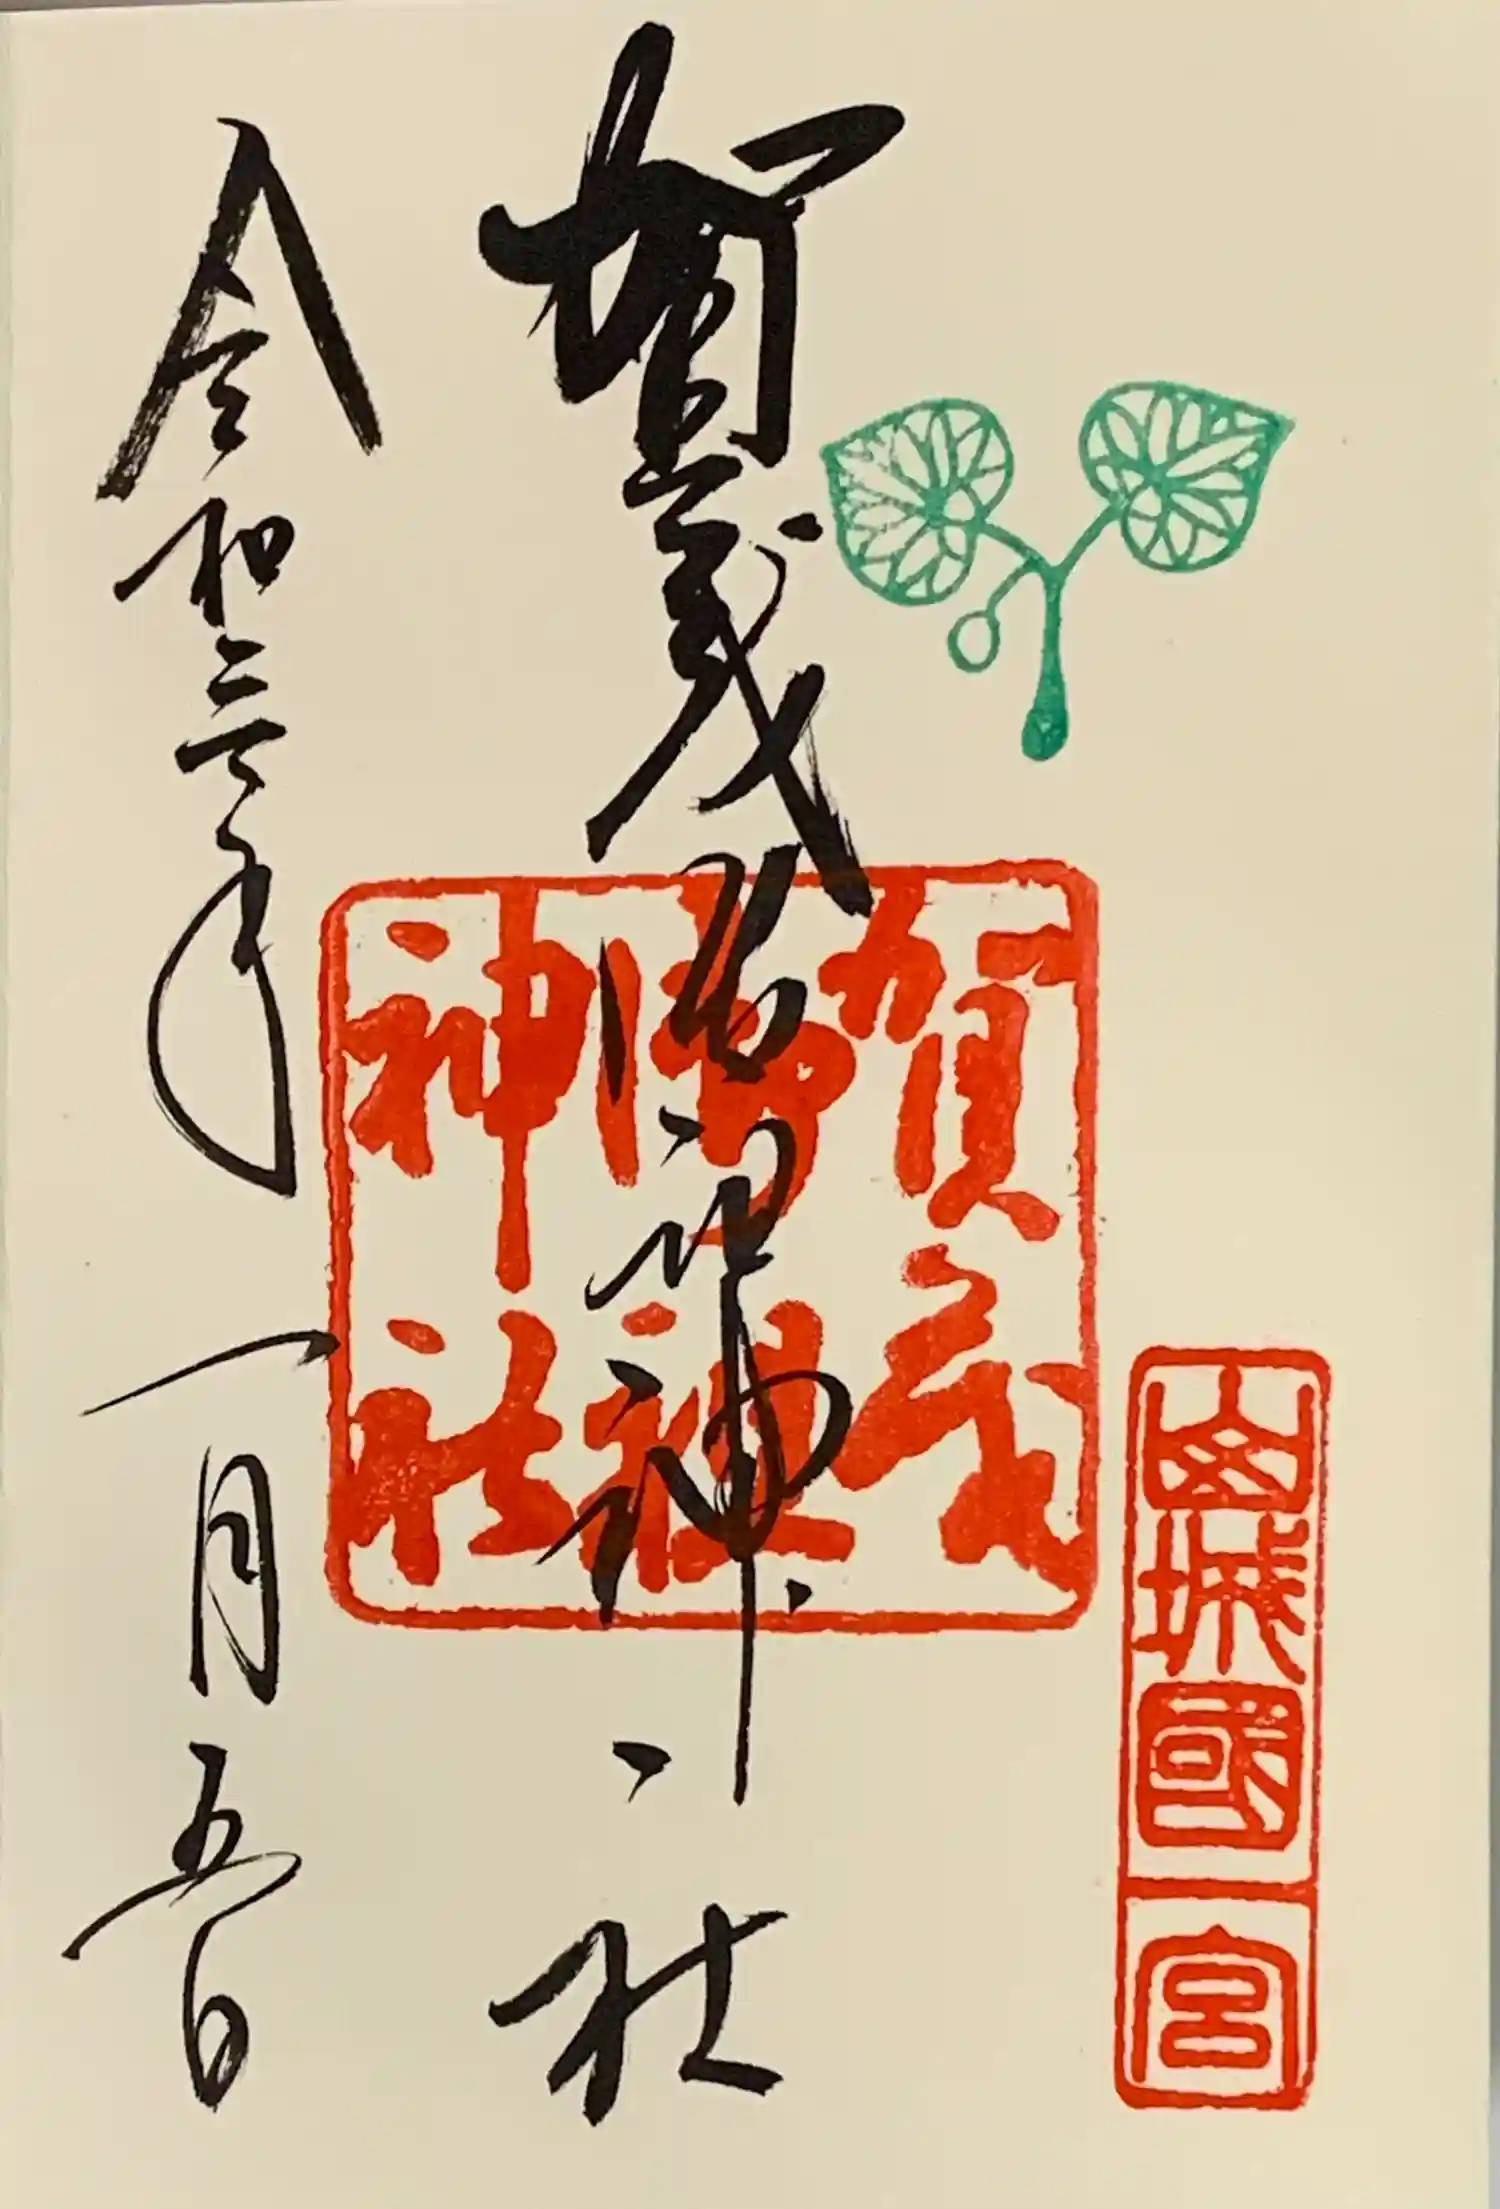 山城國一宮
賀茂御祖神社
賀茂
御祖
神社
令和三年一月五日